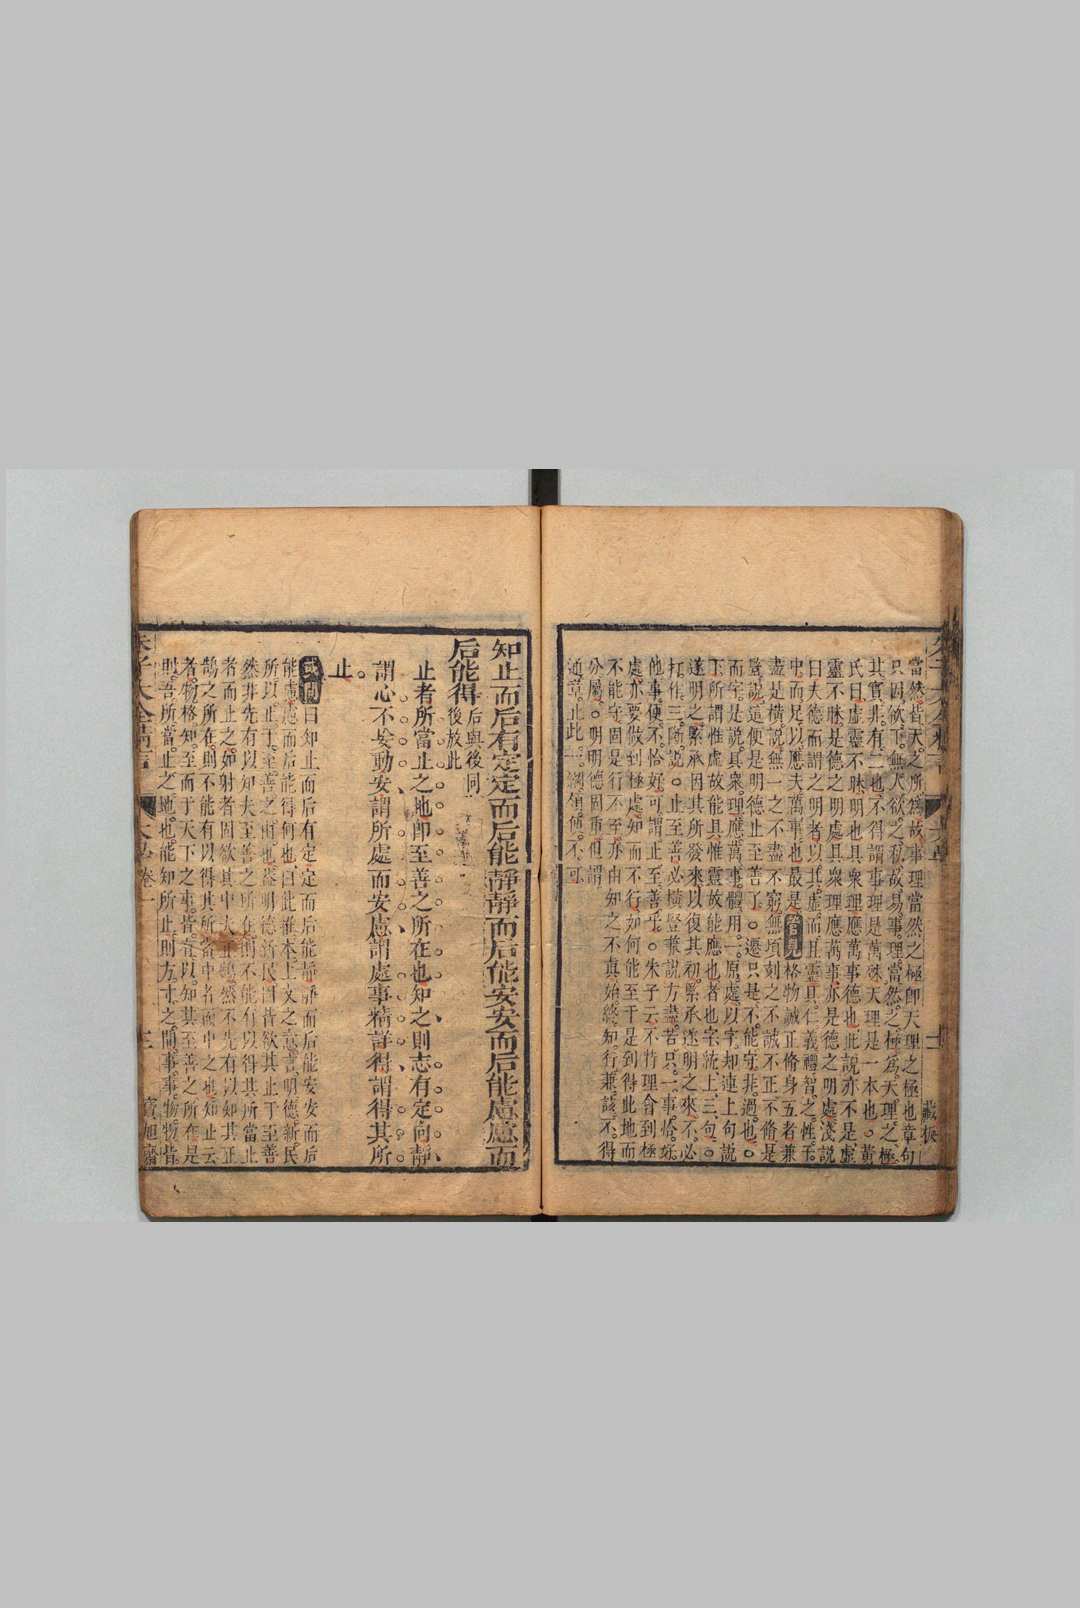 當然皆天之所爲故事理當然之極卽天理之極也章句
只因欲下無人欲之私故易事理當然之極爲天理之極
其實非有二也不得謂事理是萬殊天理是一本也○黃
氏曰虛靈不昧明也具衆理應萬事德也此說亦不是虛
靈不昧是德之明處具衆理應萬事亦是德之明處淺說
曰夫德而謂之明者以其虛而且靈具仁義禮智之性于
中而足以應夫萬事也最是 若見 格物誠正脩身五者兼
盡是橫說無一之不盡不窮無頃刻之不誠不正不脩是
豎說這便是明德止至善了○還只是不能守非過也○
而字是說具衆理應萬事體用一原處以字却連上句說
下所謂惟虛故能具惟靈故能應也者也字統上三句○
遂明之緊承因其所發來以復其初緊承遂明之來不必
打作三段說○止至善必橫豎兼說方盡若只一事恰好
他事便不恰好可謂止至善乎○朱子云不特理會到極
處亦要做到極處知而不行如何能至于是到得此地而
不能守固是行不至亦由知之不真始終知行兼該不得
分屬○明明德固重但謂
通章止此一綱領便不可
知止而后有定定而后能靜靜而后能安安而后能慮慮而
后能得 后與後同後放此
止者所當止之地卽至善之所在也知之則志有定向靜
謂心不妄動安謂所處而安慮謂處事精詳得謂得其所
止。
或問 曰知止而后有定定而后能靜靜而后能安安而后
能慮慮而后能得何也曰此推本上文之意言明德新民
所以止于至善之由也蓋明德新民固皆欲其止于至善
然非先有以知夫至善之所在則不能有以得其所當止
者而止之如射者固欲其中夫正鵠然不先有以知其正
鵠之所在則不能有以得其所當中者而中之也知止云
者物格知至而于天下之事皆有以知其至善之所在是
則吾所當止之地也能知所止則方寸之間事事物物皆